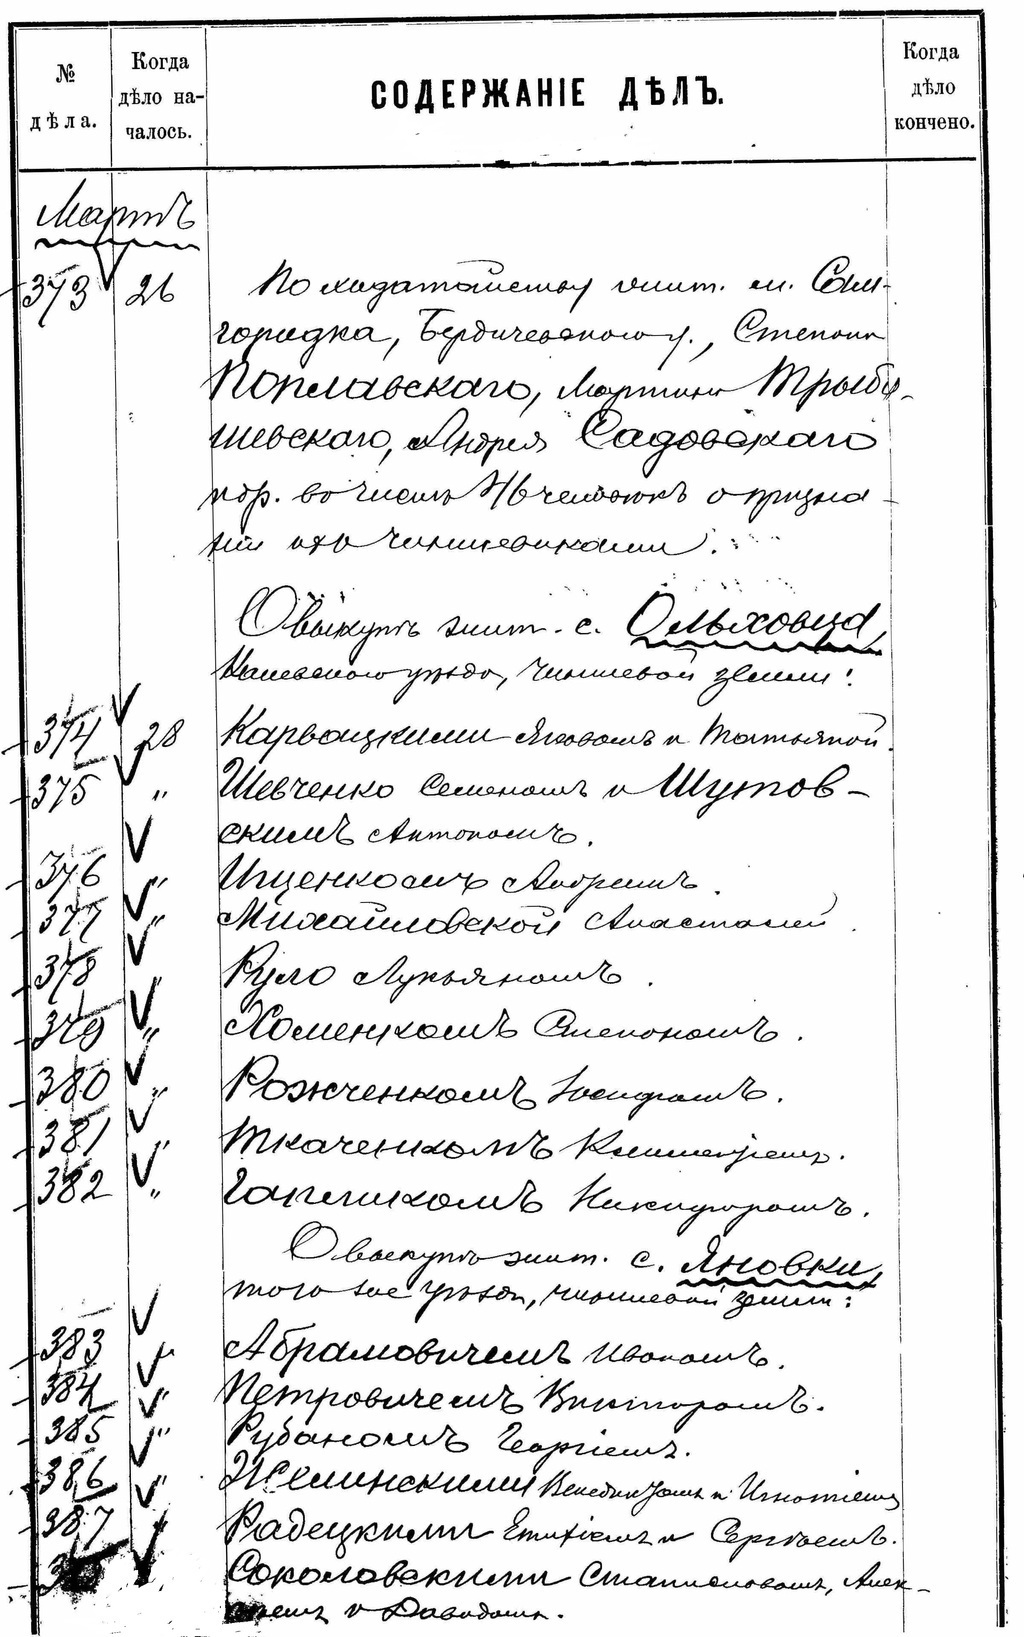 № дѣла.
Когда дѣло на-
чалось.
СОДЕРЖАНІЕ ДѢЛЪ.
Когда дѣло кончено.
Мартъ
373 26 По ходатайству жит. м. Сам-
городка, Бердичевскаго у., Степана
Поплавскаго, Мартина Трыбу-
шевскаго, Андрея Садовскаго
и др. въ числѣ человѣкъ о призна-
нiи ихъ чиншевиками.
О выкупѣ жит. с. Ольховца,
уѣзда, чиншевой земли:
374 28 Карвацкими Яковомъ и Татьяной.
375 " Шевченко Семеномъ и Шутов-
скимъ Антономъ.
376 " Ищенкомъ Андреемъ.
377 " Михайловской Анастасіей.
378 " Руло Лукьяномъ.
379 " Хоменкомъ Степаномъ.
380 " Рожченкомъ Іосифомъ.
381 " Ткаченкомъ Климентіемъ.
382 " Гапликомъ Никифоромъ.
О выкупѣ жит. с. Яновки,
того же уѣзда, чиншевой земли:
383 " Абрамовичемъ Иваномъ.
384 " Петровичемъ Викторомъ.
385 " Рубаномъ Георгіемъ.
386 " Жеминскими Венедиктомъ и Игнатіемъ
387 " Радецкими Евтихіемъ и Сергѣемъ.
Соколовскими Станиславомъ, Алек-
и Давидомъ.